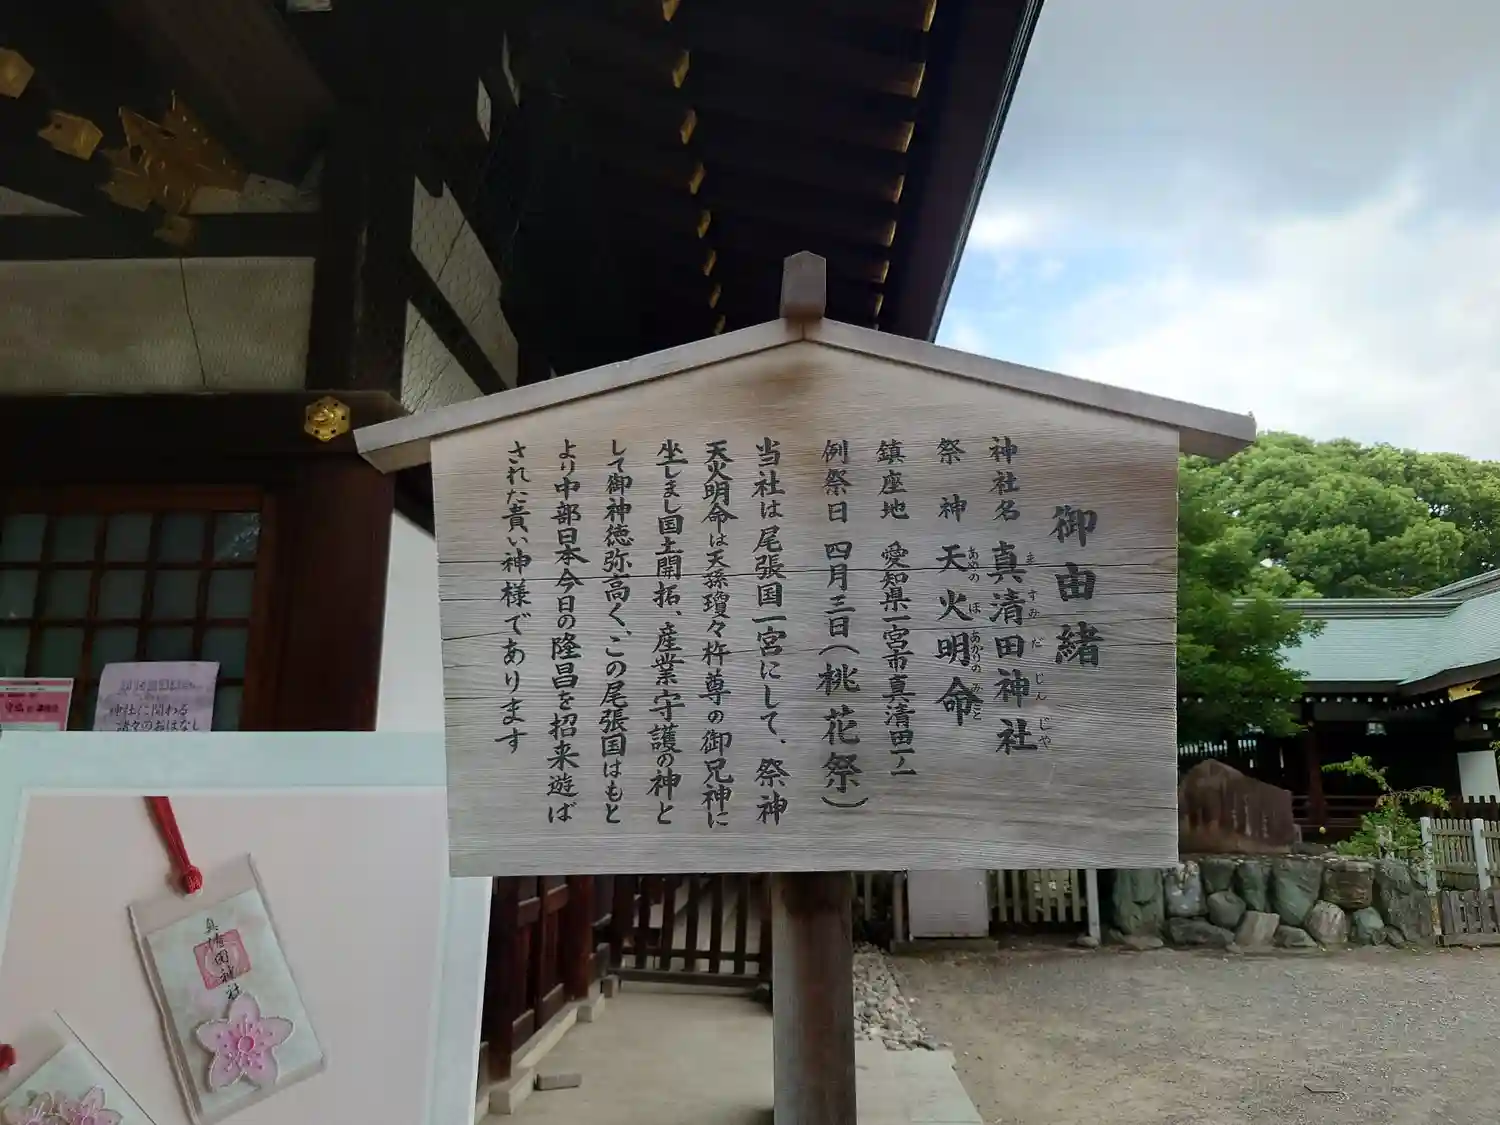 御由緒
神社名 真清田神社
ますみだじんじゃ
祭神 天火明命
あめのほあかりのみこと
鎮座地 愛知県一宮市真清田一ノ一
例祭日 四月三日(桃花祭)
当社は尾張国一宮にして、祭神
天火明命は天孫瓊々杵尊の御兄神に
坐しまし国土開拓、産業守護の神と
して御神徳弥高く、この尾張国はもと
より中部日本今日の隆昌を招来遊ば
された貴い神様であります
神社に関わる
諸々のおはなし
真清田神社